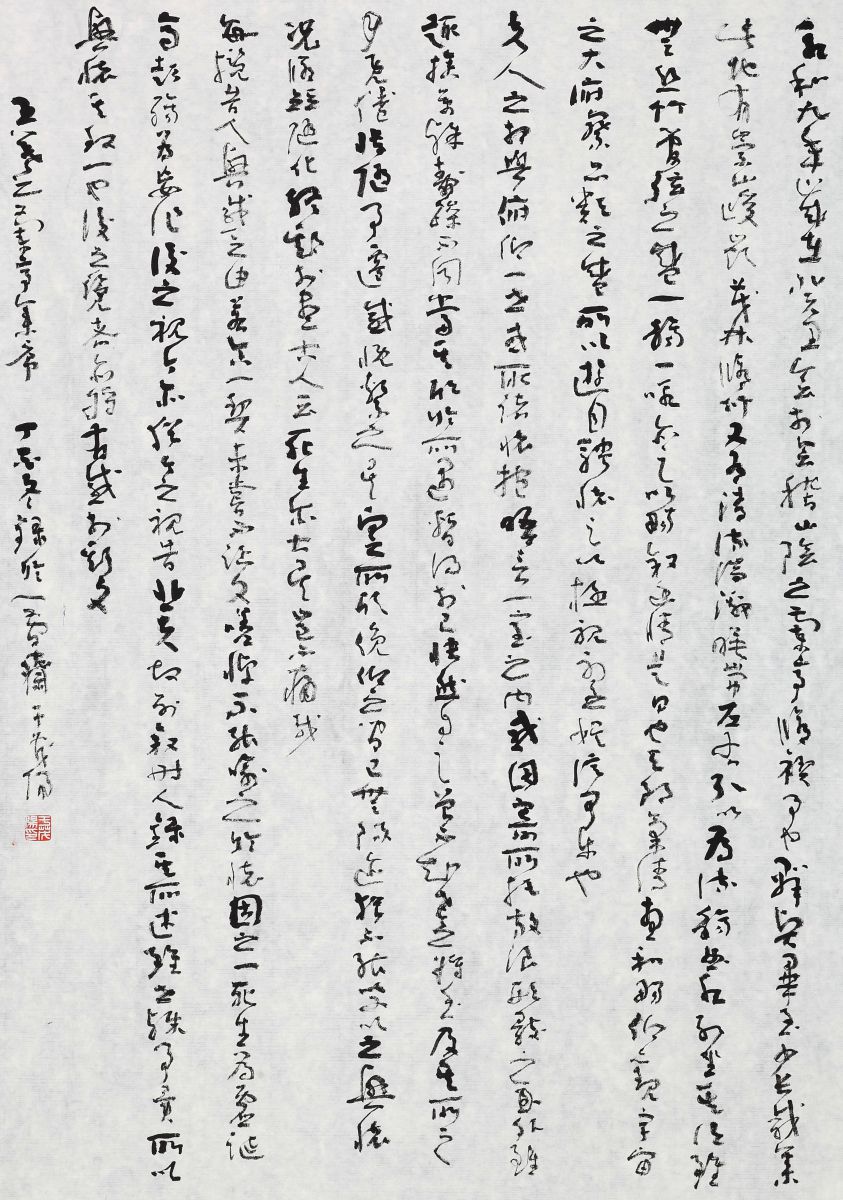 永和九年歲在癸丑會於會稽山陰之蘭亭脩禊事也群賢畢至少長咸集
此地有崇山峻嶺茂林脩竹又有清流湍激映帶左右引以為流觴曲水列坐其次雖
無絲竹管弦之盛一觴一詠亦足以暢敘幽情是日也天朗氣清惠和暢仰觀宇宙
之大俯察品類之盛所以遊目騁懷足以極視聽之娛信可樂也
夫人之相與俯仰一世或取諸懷抱晤言一室之內或因寄所託放浪形骸之外雖
趣捨萬殊靜躁不同當其欣於所遇暫得於己快然自足曾不知老之將至及其所之
既倦情隨事遷感慨繫之矣向之所欣俛仰之間已為陳迹猶不能不以之興懷
況脩短隨化終期於盡古人云死生亦大矣豈不痛哉
每攬昔人興感之由若合一契未嘗不臨文嗟悼不能喻之於懷固知一死生為虛誕
齊彭殤為妄作後之視今亦猶今之視昔悲夫故列敘時人錄其所述雖世殊事異所以
興懷其致一也後之覽者亦將有感於斯文
王羲之蘭亭集序 丁亥冬錄於一齋